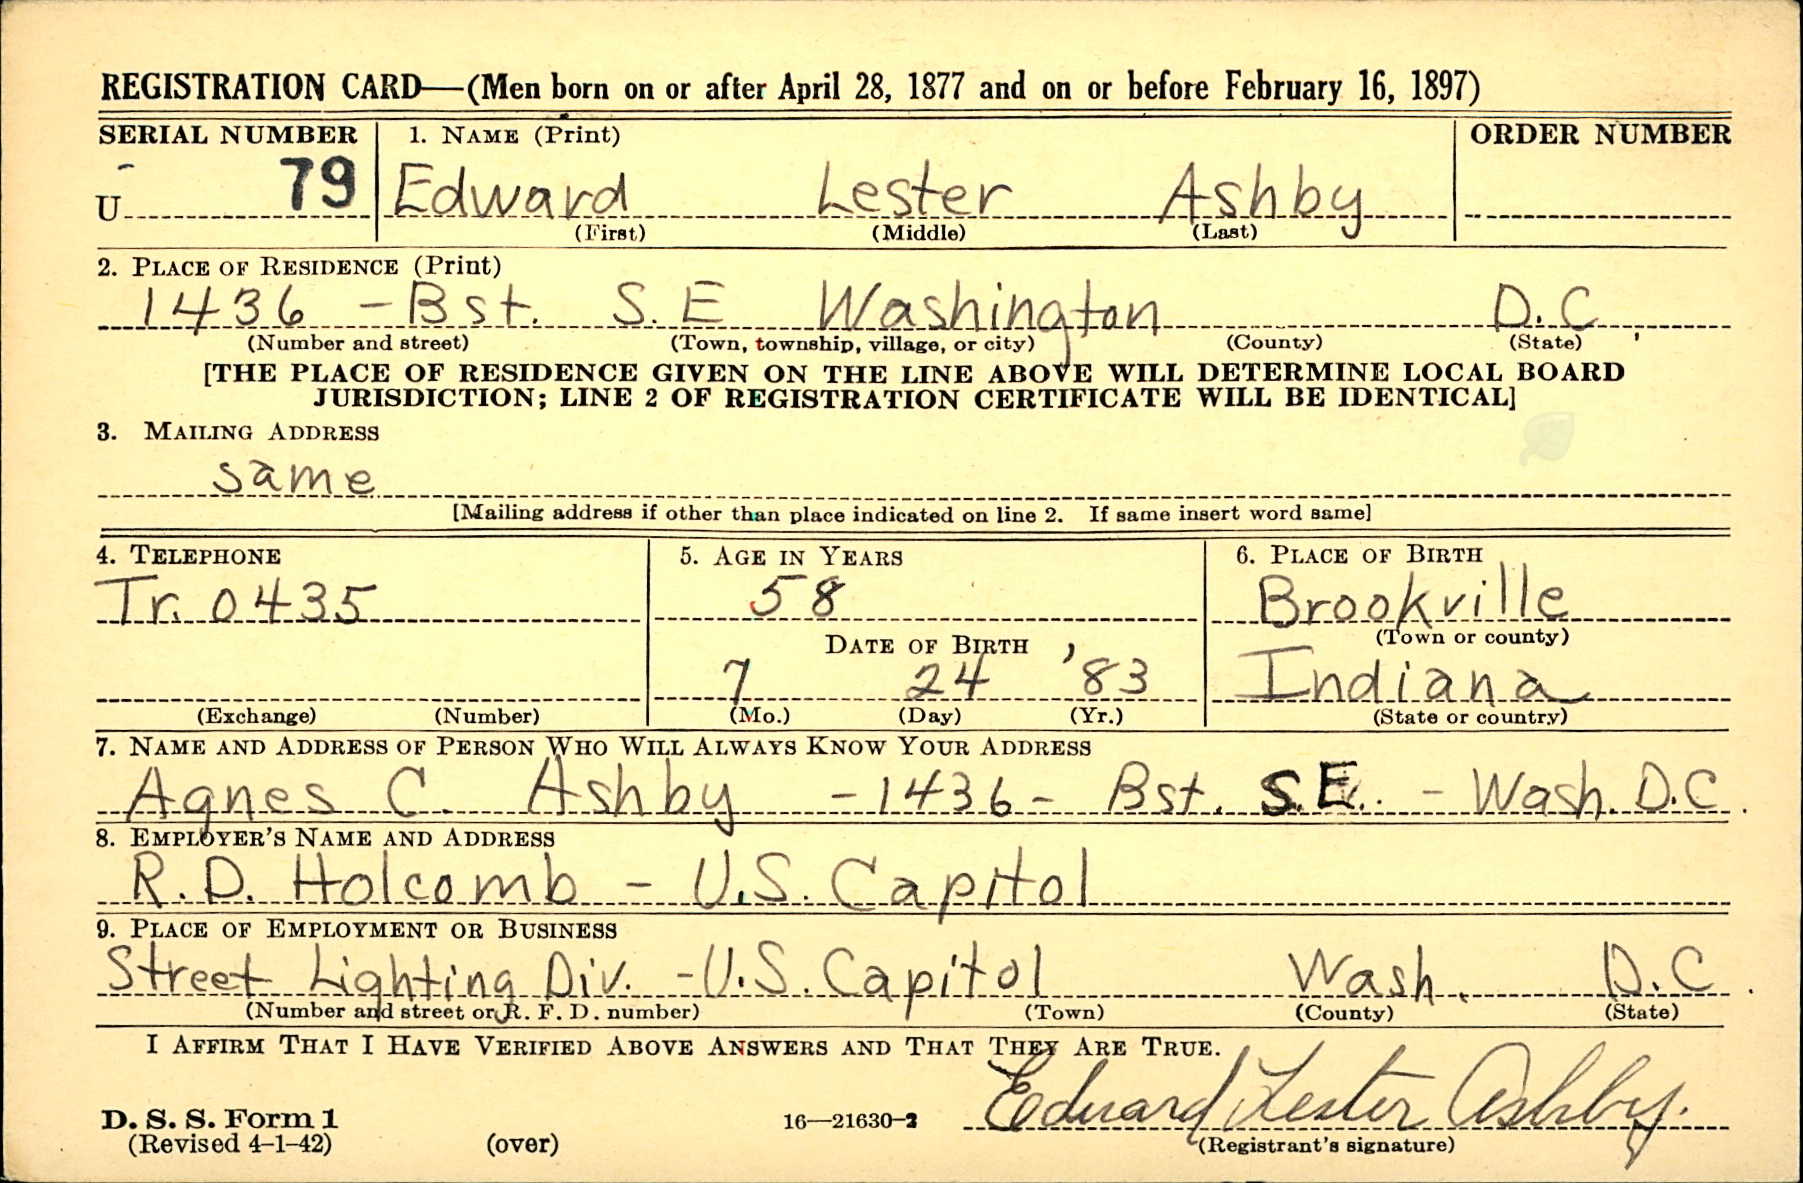 REGISTRATION CARD—(Men born on or after April 28, 1877 and on or before February 16, 1897)
SERIAL NUMBER 1. NAME (Print) ORDER NUMBER
U 79 Edward Lester Ashby
(First) (Middle) (Last)
2. PLACE OF RESIDENCE (Print)
1436 - B st. S. E Washington D. C
(Number and street) (Town, township, village, or city) (County) (State)
[THE PLACE OF RESIDENCE GIVEN ON THE LINE ABOVE WILL DETERMINE LOCAL BOARD
JURISDICTION; LINE 2 OF REGISTRATION CERTIFICATE WILL BE IDENTICAL]
3. MAILING ADDRESS
same
[Mailing address if other than place indicated on line 2. If same insert word same]
4. TELEPHONE 5. AGE IN YEARS 6. PLACE OF BIRTH
Tr. 0435 58 Brookville
DATE OF BIRTH (Town or county)
7 24 '83 Indiana
(Exchange) (Number) (Mo.) (Day) (Yr.) (State or country)
7. NAME AND ADDRESS OF PERSON WHO WILL ALWAYS KNOW YOUR ADDRESS
Agnes C. Ashby - 1436 - B st. S.E. - Wash. D.C.
8. EMPLOYER'S NAME AND ADDRESS
R. D. Holcomb - U.S. Capitol
9. PLACE OF EMPLOYMENT OR BUSINESS
Street Lighting Div. - U.S. Capitol Wash. D.C.
(Number and street or R. F. D. number) (Town) (County) (State)
I AFFIRM THAT I HAVE VERIFIED ABOVE ANSWERS AND THAT THEY ARE TRUE.
Edward Lester Ashby.
D. S. S. Form 1 16—21630-2
(Revised 4-1-42) (over) (Registrant's signature)